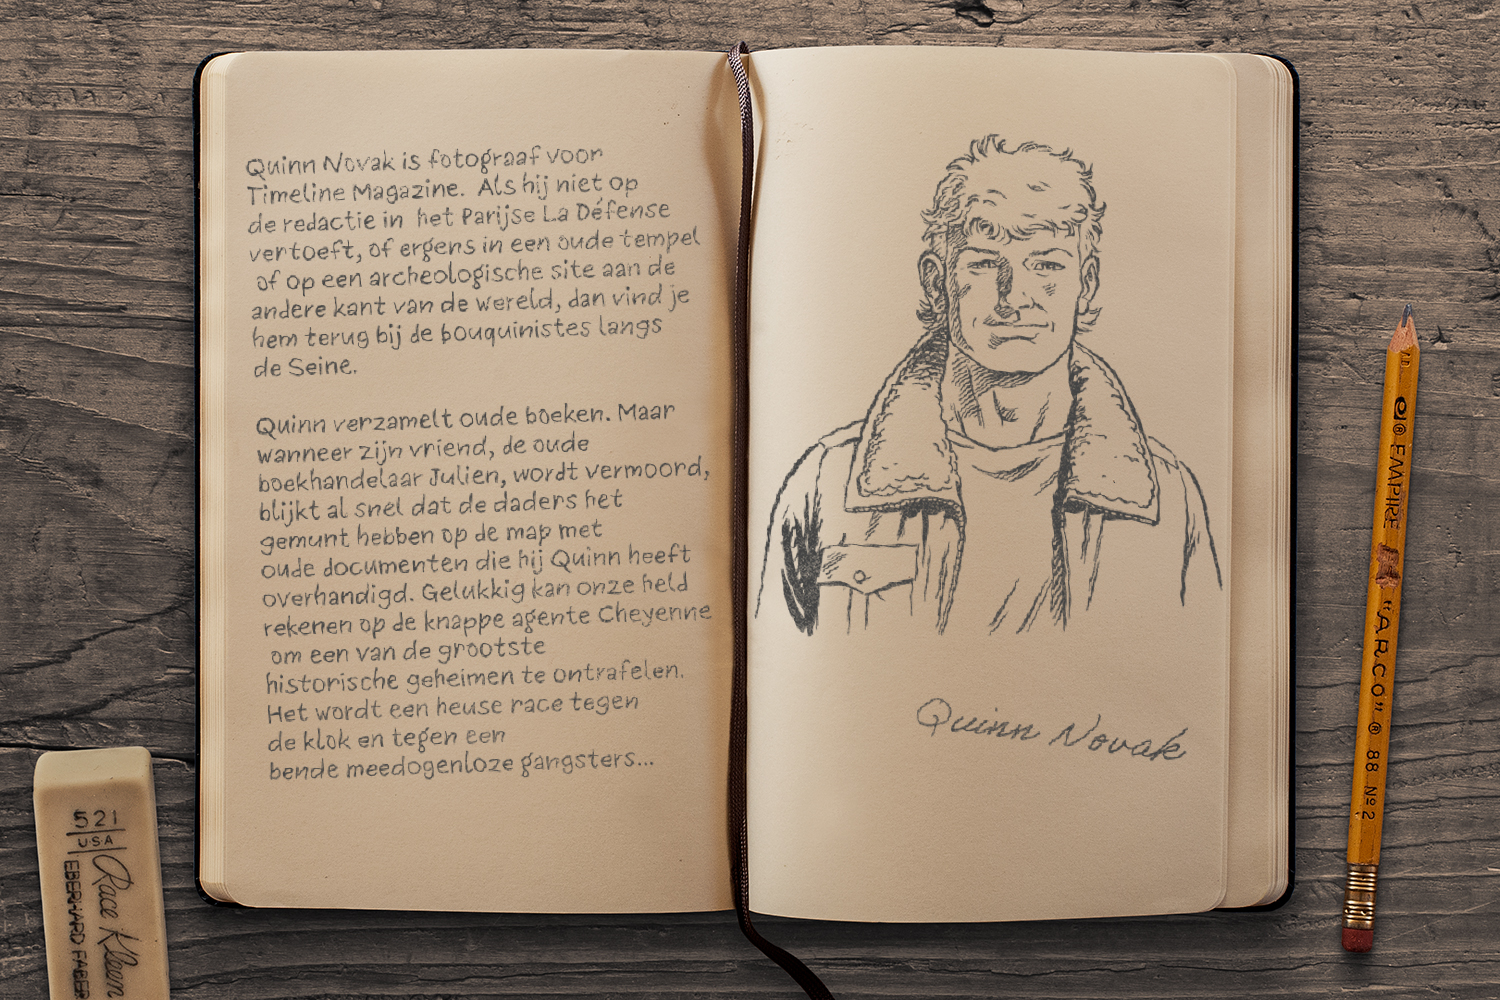 Quinn Novak is fotograaf voor
Timeline Magazine. Als hij niet op
de redactie in het Parijse La Défense
vertoeft, of ergens in een oude tempel
of op een archeologische site aan de
andere kant van de wereld, dan vind je
hem terug bij de bouquinistes langs
de Seine.
Quinn verzamelt oude boeken. Maar
wanneer zijn vriend, de oude
boekhandelaar Julien, wordt vermoord,
blijkt al snel dat de daders het
gemunt hebben op de map met
oude documenten die hij Quinn heeft
overhandigd. Gelukkig kan onze held
rekenen op de knappe agente Cheyenne
om een van de grootste
historische geheimen te ontrafelen.
Het wordt een heuse race tegen
de klok en tegen een
bende meedogenloze gangsters...
Quinn Novak
521
USA
Race Kleen
EBERHARD FABER
® EMPIRE "ARCO" ® 88 Nº2